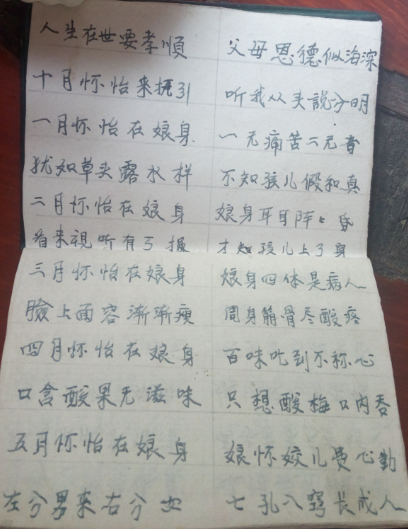 人生在世要孝順 父母恩德似海深
十月怀怡来振引 听我从头說分明
一月怀怡在娘身 一无痛苦二无音
犹如草头露水样 不知孩儿假和真
二月怀怡在娘身 娘身耳目阵々昏
看来視听有亏損 才知孩儿上了身
三月怀怡在娘身 娘身四体是病人
臉上面容渐渐瘦 周身筋骨尽酸疼
四月怀怡在娘身 百味吃到不称心
口含酸果无滋味 只想酸梅口内吞
五月怀怡在娘身 娘怀姣儿费心勤
左分男来右分女 七孔八窍长成人